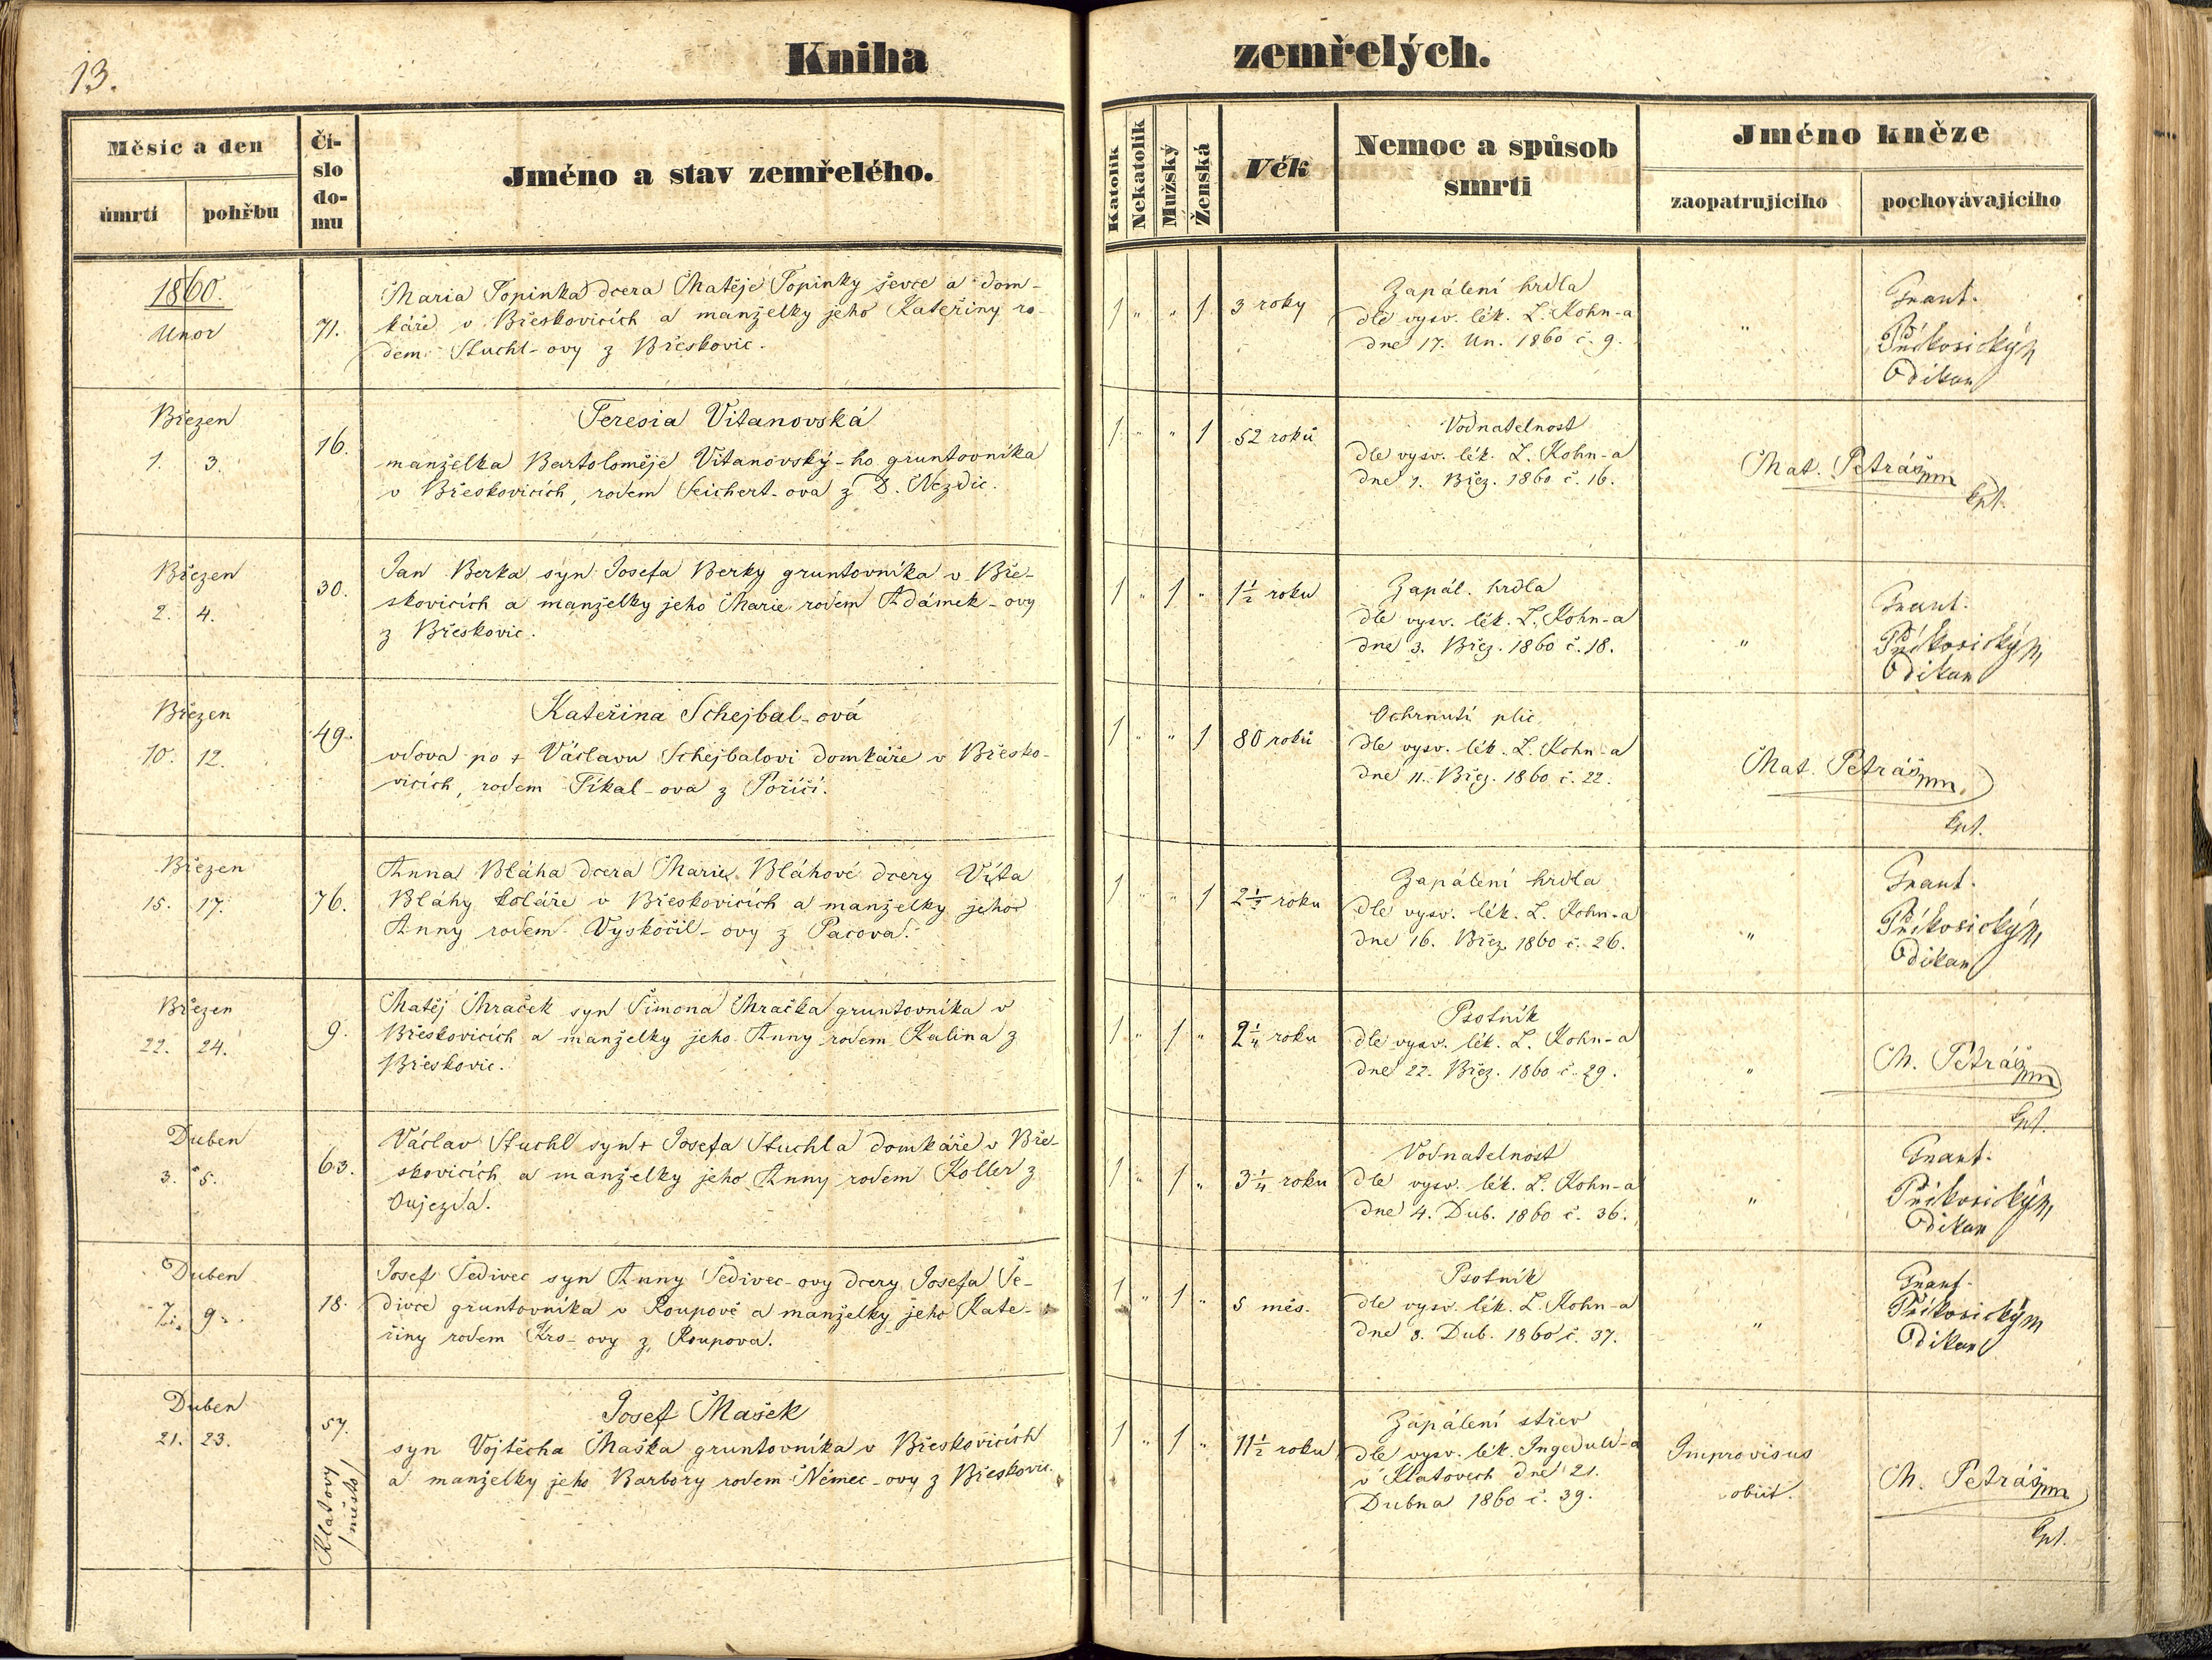 13.
Kniha zemřelých.
Měsíc a den
úmrtí
pohřbu
Čí-
slo
do-
mu
Jméno a stav zemřelého.
Katolík
Nekatolík
Mužský
Ženská
Věk
Nemoc a spůsob
smrti
Jméno kněze
zaopatrujícího
pochovávajícího
1860.
Unor
71.
Maria Topinka dcera Matěje Topinky ševce a dom-
káře v Břeskovicích a manželky jeho Kateřiny ro-
dem Stuchl-ovy z Břeskovic.
1 " " 1
3 roky
Zapálení hrdla
dle vysv. lék. L. Kohn-a
dne 17. Un. 1860 č. 9.
"
Frant.
Příkosický
Děkan
Březen
1. 3.
16.
Teresia Vitanovská
manželka Bartoloměje Vitanovský-ho gruntovníka
v Břeskovicích, rodem Seichert-ova z D. Nezdic.
1 " " 1
52 roků
Vodnatelnost
dle vysv. lék. L. Kohn-a
dne 1. Břez. 1860 č. 16.
Mat. Petráš mp
kpl.
Březen
2. 4.
30.
Jan Berka syn Josefa Berky gruntovníka v Bře-
skovicích a manželky jeho Marie rodem Adámek-ovy
z Břeskovic.
1 " 1 "
1½ roku
Zapál. hrdla
dle vysv. lék. L. Kohn-a
dne 3. Břez. 1860 č. 18.
"
Frant.
Příkosický
Děkan
Březen
10. 12.
49.
Kateřina Schejbal-ová
vdova po + Václavu Schejbalovi domkáře v Břesko-
vicích, rodem Tíkal-ova z Poříčí.
1 " " 1
80 roků
Ochrnutí plic
dle vysv. lék. L. Kohn-a
dne 11. Břez. 1860 č. 22.
Mat. Petráš mp.
kpl.
Březen
15. 17.
76.
Anna Bláha dcera Marie Bláhové dcery Víta
Bláhy koláře v Břeskovicích a manželky jeho
Anny rodem Vyskočil-ovy z Pacova.
1 " " 1
2½ roku
Zapálení hrdla
dle vysv. lék. L. Kohn-a
dne 16. Břez. 1860 č. 26.
"
Frant.
Příkosický
Děkan
Březen
22. 24.
9.
Matěj Mraček syn Šimona Mračka gruntovníka v
Břeskovicích a manželky jeho Anny rodem Kalina z
Břeskovic.
1 " 1 "
2¼ roku
Psotník
dle vysv. lék. L. Kohn-a
dne 22. Břez. 1860 č. 29.
"
M. Petráš mp
kpl.
Duben
3. 5.
63.
Václav Stuchl syn + Josefa Stuchla domkáře v Bře-
skovicích a manželky jeho Anny rodem Koller z
Oujezda.
1 " 1 "
3¼ roku
Vodnatelnost
dle vysv. lék. L. Kohn-a
dne 4. Dub. 1860 č. 36.
"
Frant.
Příkosický
Děkan
Duben
7. 9.
18.
Josef Šedivec syn Anny Šedivec-ovy dcery Josefa Še-
divce gruntovníka v Roupově a manželky jeho Kate-
řiny rodem Kro-ovy z Roupova.
1 " 1 "
5 měs.
Psotník
dle vysv. lék. L. Kohn-a
dne 8. Dub. 1860 č. 37.
"
Frant.
Příkosický
Děkan
Duben
21. 23.
57.
Klatovy
/město/
Josef Mašek
syn Vojtěcha Maška gruntovníka v Břeskovicích
a manželky jeho Barbory rodem Němec-ovy z Břeskovic.
1 " 1 "
11½ roku
Zapálení střev
dle vysv. lék. Ingeduld-a
v Klatovech dne 21.
Dubna 1860 č. 39.
Improvisus
obiit.
M. Petráš mp
kpl.